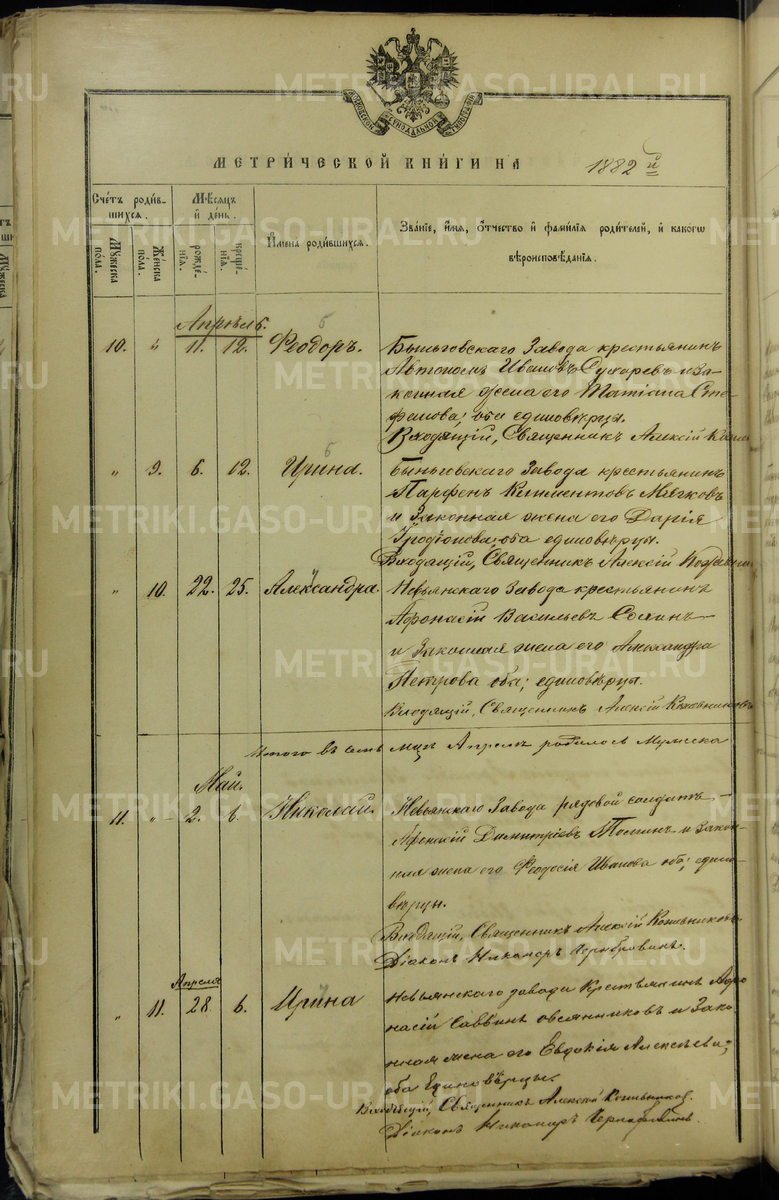 МЕТРИ́ЧЕСКОЙ КНИ́ГИ НА 1882 й
Сче́тъ роди́в-
шихся.
Му́жеска по́ла.
Же́нска по́ла.
Мѣ́сяцъ
и҆ де́нь.
рожде́-
нїѧ.
креще́-
нїѧ.
И҆мена̀ роди́вшихся.
Зва́нїе, и҆́мѧ, ѻ҆́тчество и҆ фами́лїѧ роди́телей, и҆ како́гѡ
вѣроисповѣ́данїѧ.
Апрѣль
10. " 11. 12. Ѳеодоръ.
Быньговскаго Завода крестьянинъ
Автономъ Ивановъ Сухаревъ и за-
конная жена его Татіана Сте-
фанова; оба единовѣрцы.
Входящій, Священникъ Алексій
" 9. 6. 12. Ирина.
Быньговскаго Завода крестьянинъ
Парфенъ Климентовъ Мягковъ
и Законная жена его Дарія
Иродіонова; оба единовѣрцы.
Входящій, Священникъ Алексій
" 10. 22. 25. Александра.
Невьянскаго Завода крестьянинъ
Афонасій Васильевъ
и Законная жена его Александра
Петрова оба; единовѣрцы.
Входящій, Священникъ Алексій Кожевниковъ
Итого въ семъ мцѣ Апрелѣ родилось Мужеска
Май.
11. " 2. 6. Николай.
Невьянскаго Завода рядовой солдатъ
Димитріевъ и Закон-
ная жена его Феодосія Иванова оба; едино-
вѣрцы.
Входящій, Священникъ Алексій Кожевниковъ
Діаконъ Никаноръ Чернобровинъ.
Апреля
" 11. 28. 6. Ирина
Невьянскаго завода Крестьянинъ Афо
насій Саввинъ овсянниковъ и Зако-
нная жена его Евдокія Алексѣева;
оба Единовѣрцы.
Входящій, Священникъ Алексій Кожевниковъ.
Діаконъ Никаноръ Чернобровинъ.
METRIKI.GASO-URAL.RU